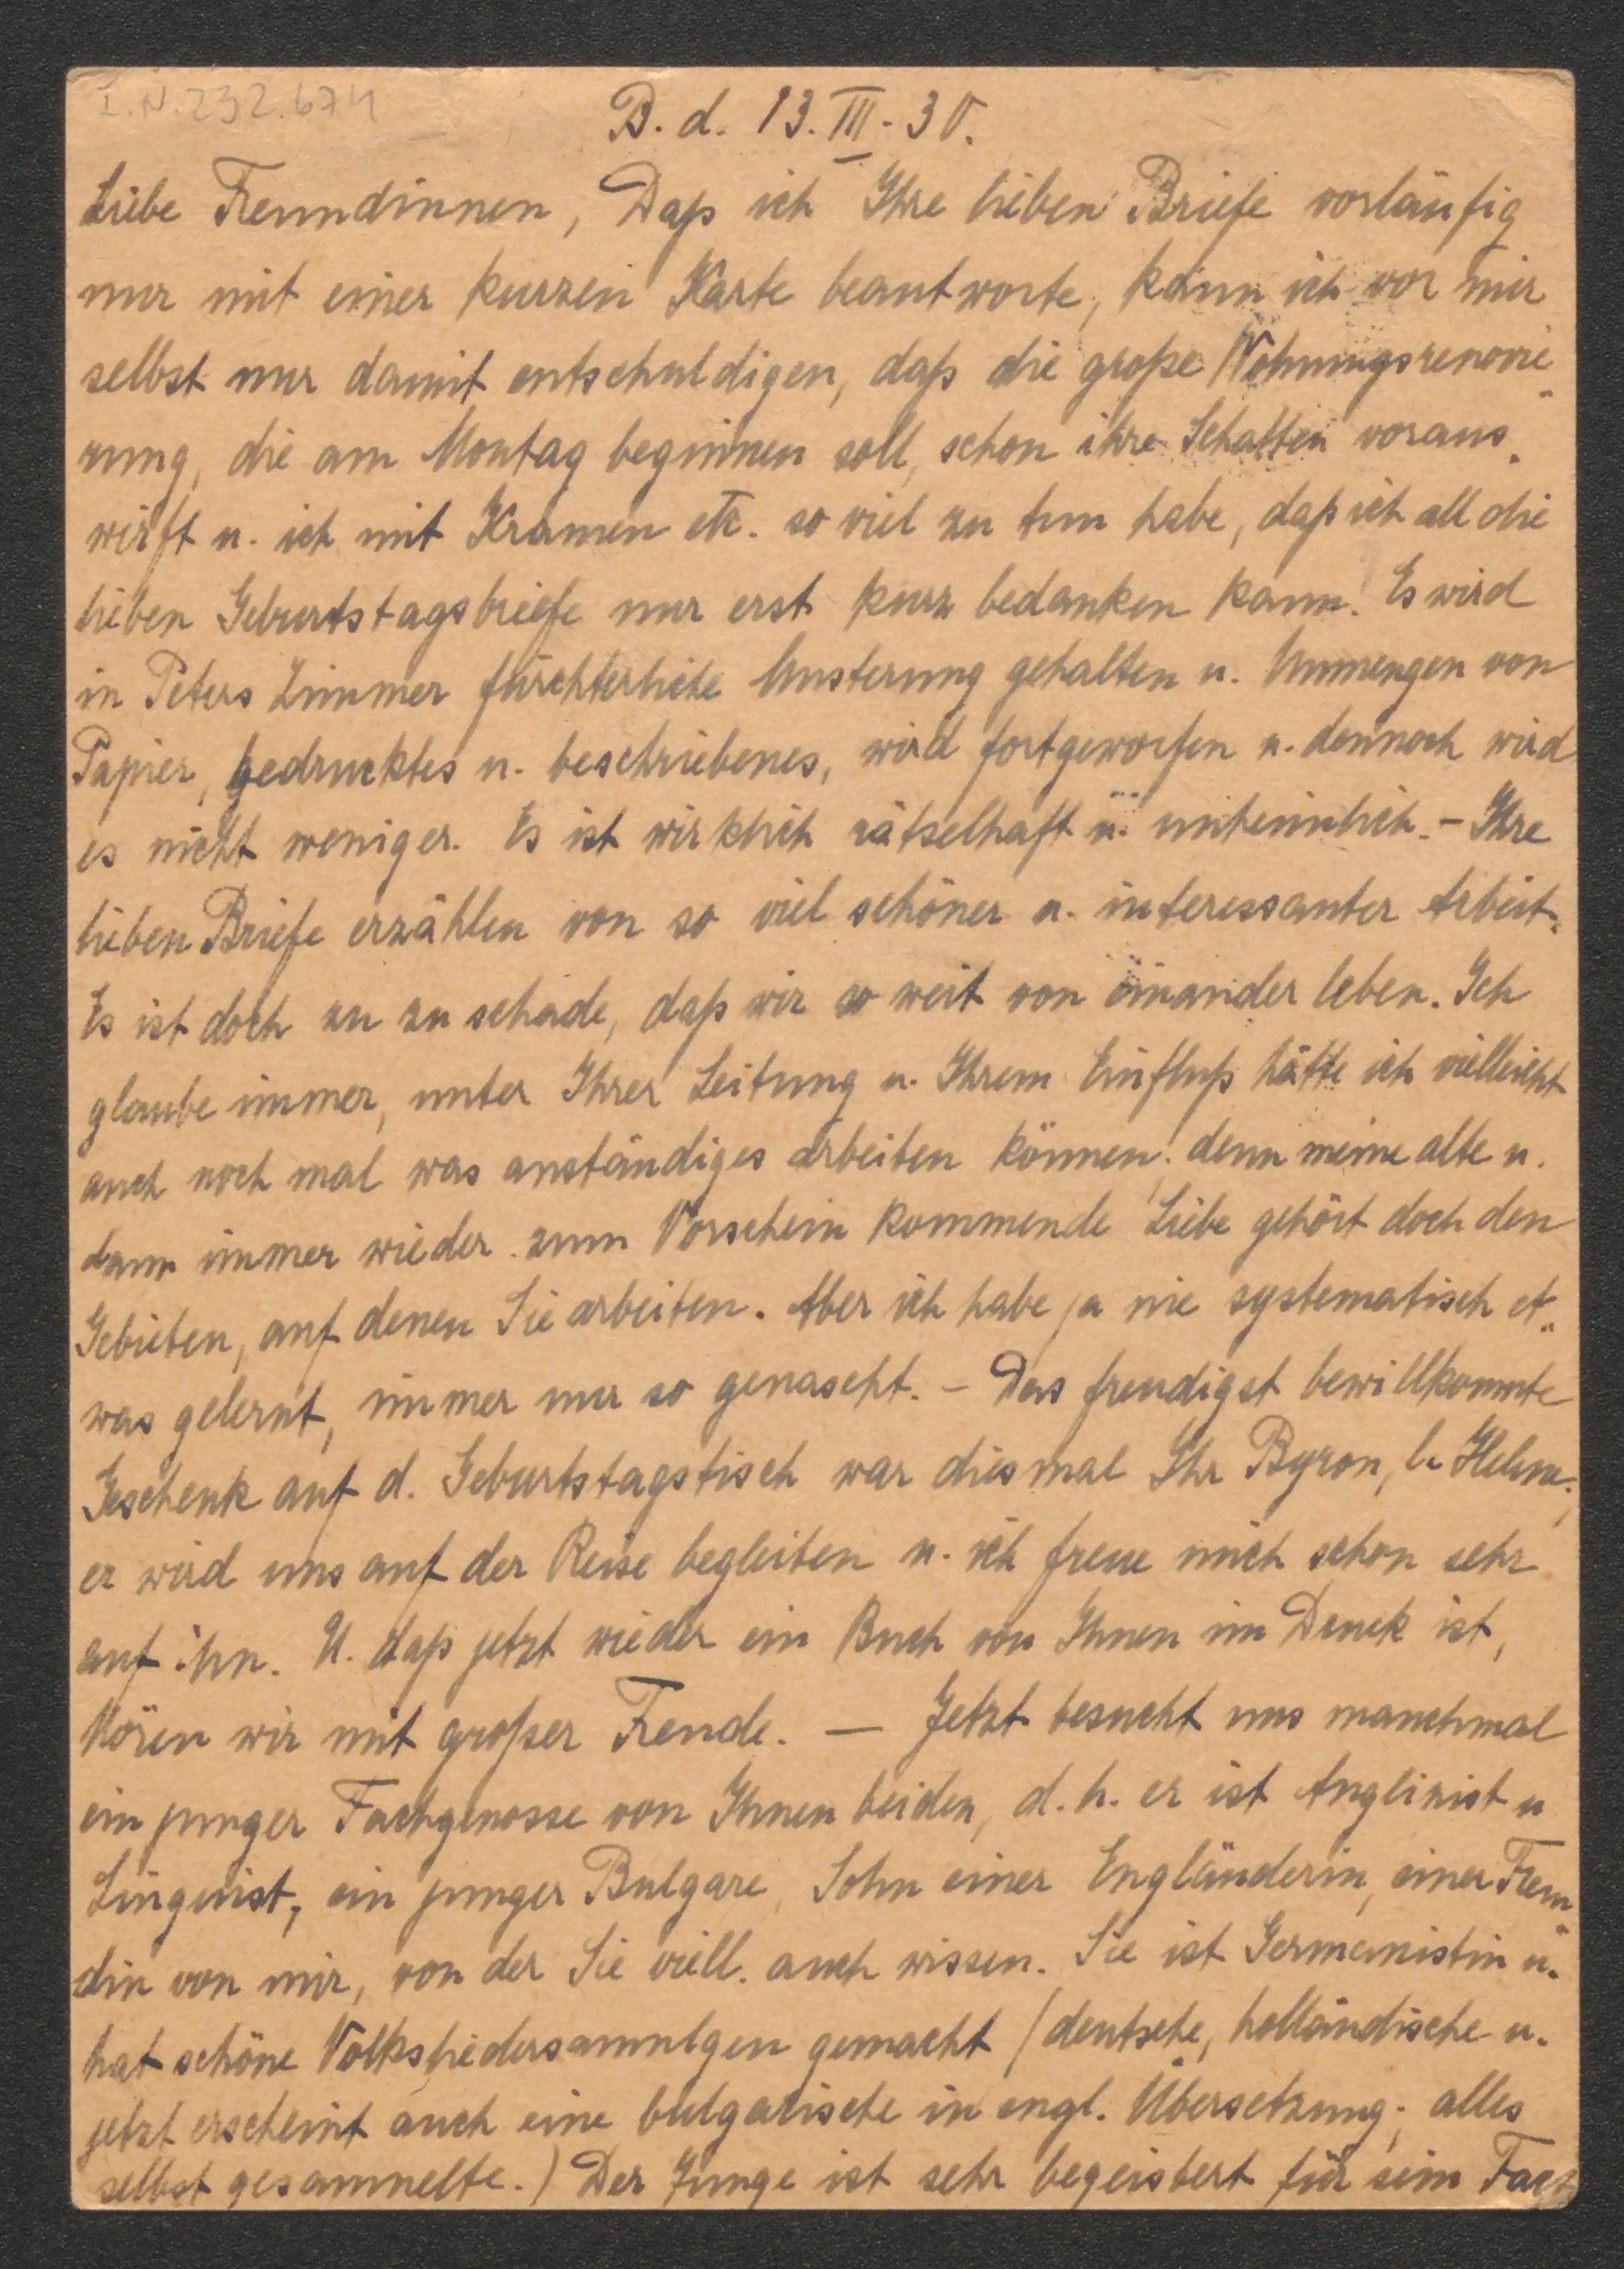 I.N. 232.674
B. d. 13. III. 30.
Liebe Freundinnen, Daß ich Ihre lieben Briefe vorläufig
nur mit einer kurzen Karte beantworte, kann ich vor mir
selbst nur damit entschuldigen, daß die große Wohnungsrenovie-
rung, die am Montag beginnen soll, schon ihre Schatten voraus-
wirft u. ich mit Kramen etc. so viel zu tun habe, daß ich all die
lieben Geburtstagsbriefe nur erst kurz bedanken kann. Es wird
in Peters Zimmer fürchterliche Musterung gehalten u. Unmengen von
Papier, gedrucktes u. beschriebenes, wird fortgeworfen u. dennoch wird
es nicht weniger. Es ist wirklich rätselhaft u. unheimlich. – Ihre
lieben Briefe erzählen von so viel schöner u. interessanter Arbeit.
Es ist doch zu zu schade, daß wir so weit von einander leben. Ich
glaube immer, unter Ihrer Leitung u. Ihrem Einfluß hätte ich vielleicht
auch noch mal was anständiges arbeiten können, denn meine alte u.
dann immer wieder zum Vorschein kommende Liebe gehört doch den
Gebieten, auf denen Sie arbeiten. Aber ich habe ja nie systematisch et-
was gelernt, immer nur so genascht. – Das freudigst bewillkommte
Geschenk auf d. Geburtstagstisch war diesmal Ihr Byron, l. Helene;
er wird uns auf der Reise begleiten u. ich freue mich schon sehr
auf ihn. U. daß jetzt wieder ein Buch von Ihnen im Druck ist,
hören wir mit großer Freude. — Jetzt besucht uns manchmal
ein junger Fachgenosse von Ihnen beiden, d. h. er ist Anglizist u
Linguist, ein junger Bulgare, Sohn einer Engländerin, einer Freun-
din von mir, von der Sie viell. auch wissen. Sie ist Germanistin u.
hat schöne Volksliedersammlgen gemacht (deutsche, holländische u.
jetzt erscheint auch eine bulgarische in engl. Übersetzung; alles
selbst gesammelte.) Der Junge ist sehr begeistert für sein Fach